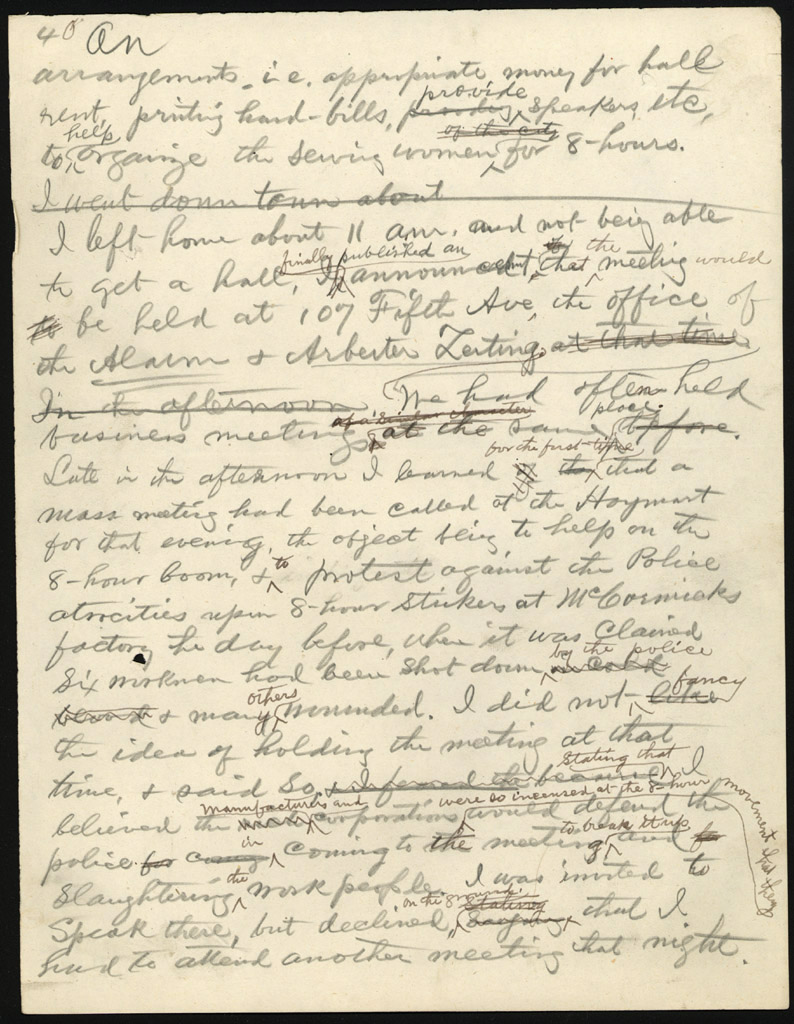 40 An
arrangements - i.e. appropriate money for hall
provide
rent, printing hand-bills, speakers, etc,
help of the city
to organize the sewing women for 8-hours.
I went down town about
I left home about 11 a.m. and not being able
finally published an to the
to get a hall, I announcement, that meeting would
to be held at 107 Fifth Ave, the office of
the Alarm & Arbeiter Zeitung. at that time
In the afternoon We had often held
of a similar character place.
business meetings at the same before.
for the first time
Late in the afternoon I learned that a
mass meeting had been called at the Haymart
for that evening, the object being to help on the
8-hour boom, & to protest against the Police
atrocities upon 8-hour Strikers at McCormicks
factory the day before, when it was Claimed
by the police
Six workmen had been shot down in cold
others fancy
blood & many wounded. I did not like
the idea of holding the meeting at that
Stating that
time, & said so, because I
manufacturers and were so incensed at the 8-hour movement that they
believed the corporations would defend the
in to break it up
police for coming to the meeting and for
the
Slaughtering work people. I was invited to
on the ground, Stating
Speak there, but declined, saying that I
had to attend another meeting that night.